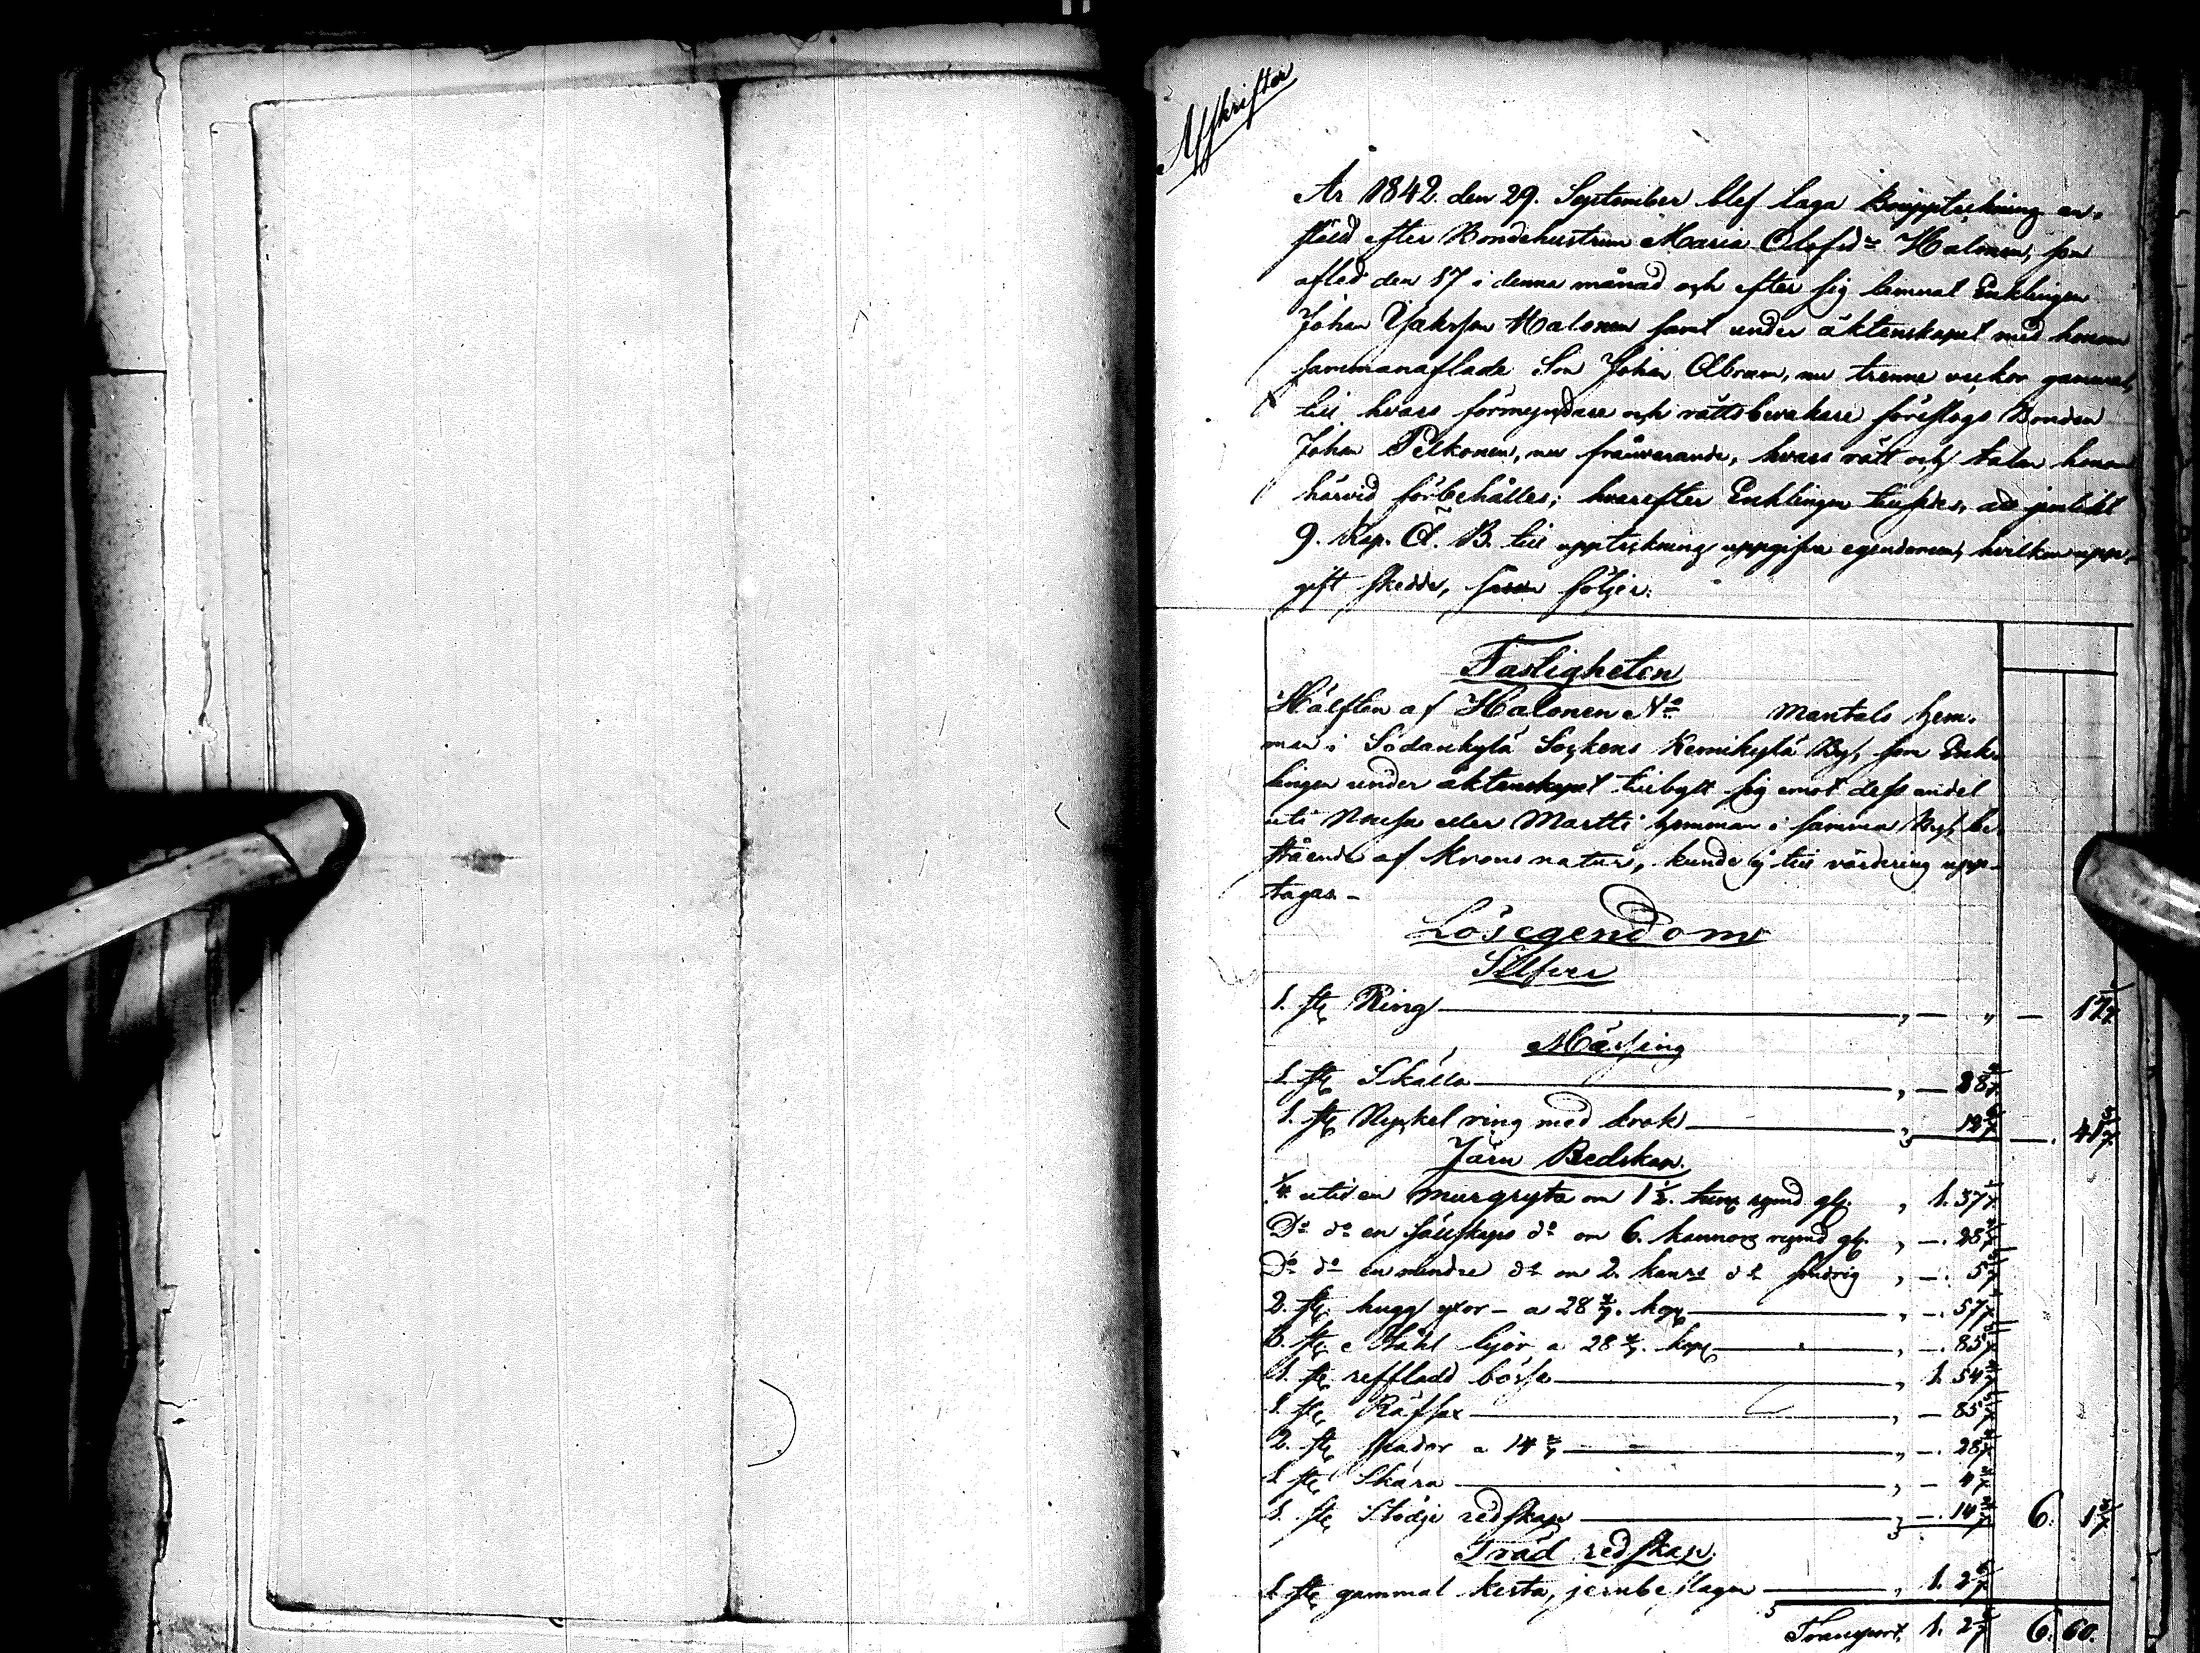 Afskrifter
År 1842 den 29. September blef laga Bouppteckning an-
stäld efter Bondehustrun Maria Olofsdr Halonen, som
afled den 17 i denna månad och efter sig lemnat Enklingen
Johan Jakosson Halonen samt under äktenskapet med honom
sammanaflade Son Johan Abram, nu trenne veckor gammal,
till hvars förmyndare och rättsbevakare föreslogs Bonden
Johan Pelkonen, nu frånvarande, hvars rätt och talan honom
härvid förbehålles; hvarefter Enklingen tillsades, att jemlikt
9. Kap. Ä. B. till uppteckning uppgifva egendomen, hvilken upp-
gift skedde, som följer:
Fastigheten
Hälften af Halonen No mantals hem-
man i Sodankylä Sockens Kemikylä By, som Enk-
lingen under äktenskapet tillbytt sig emot dess andel
uti eller Martti hemman i samma By, be-
stående af Krono natur, kunde ej till värdering upp-
tagas. -
Lösegendom
Silfver
1. st Ring " — " — 17 1/7
Mässing
1. st Skålla " — 28 4/7
1. st Nyckel ring med krok " 12 6/7 —. 41 3/7
Järn Redskap.
1/4 uti en murgryta om 1 1/2. rymd " 1. 57 1/7
Do do en sällskaps do om 6. kannors rymd " —. 28 4/7
Do do en mindre do om 2. kanrs do " —. 5 5/7
2. st hugg yxor - a 28 4/7. kop " —. 57 1/7
3. st Ståhl lijor a 28 4/7. kop " —. 85 5/7
1. st refflad bössa " 1. 54 2/7
1. st Räfsax " — 85 5/7
2. st spador a 14 2/7 " —. 28 4/7
1. st Skära " — 4 2/7
1. st Slödje redskap " —. 14 2/7 6. 1 3/7
Träd redskap.
1. st gammal kersta, jernbeslagen " 1. 2 6/7
Transport, 1. 2 6/7 6. 60.